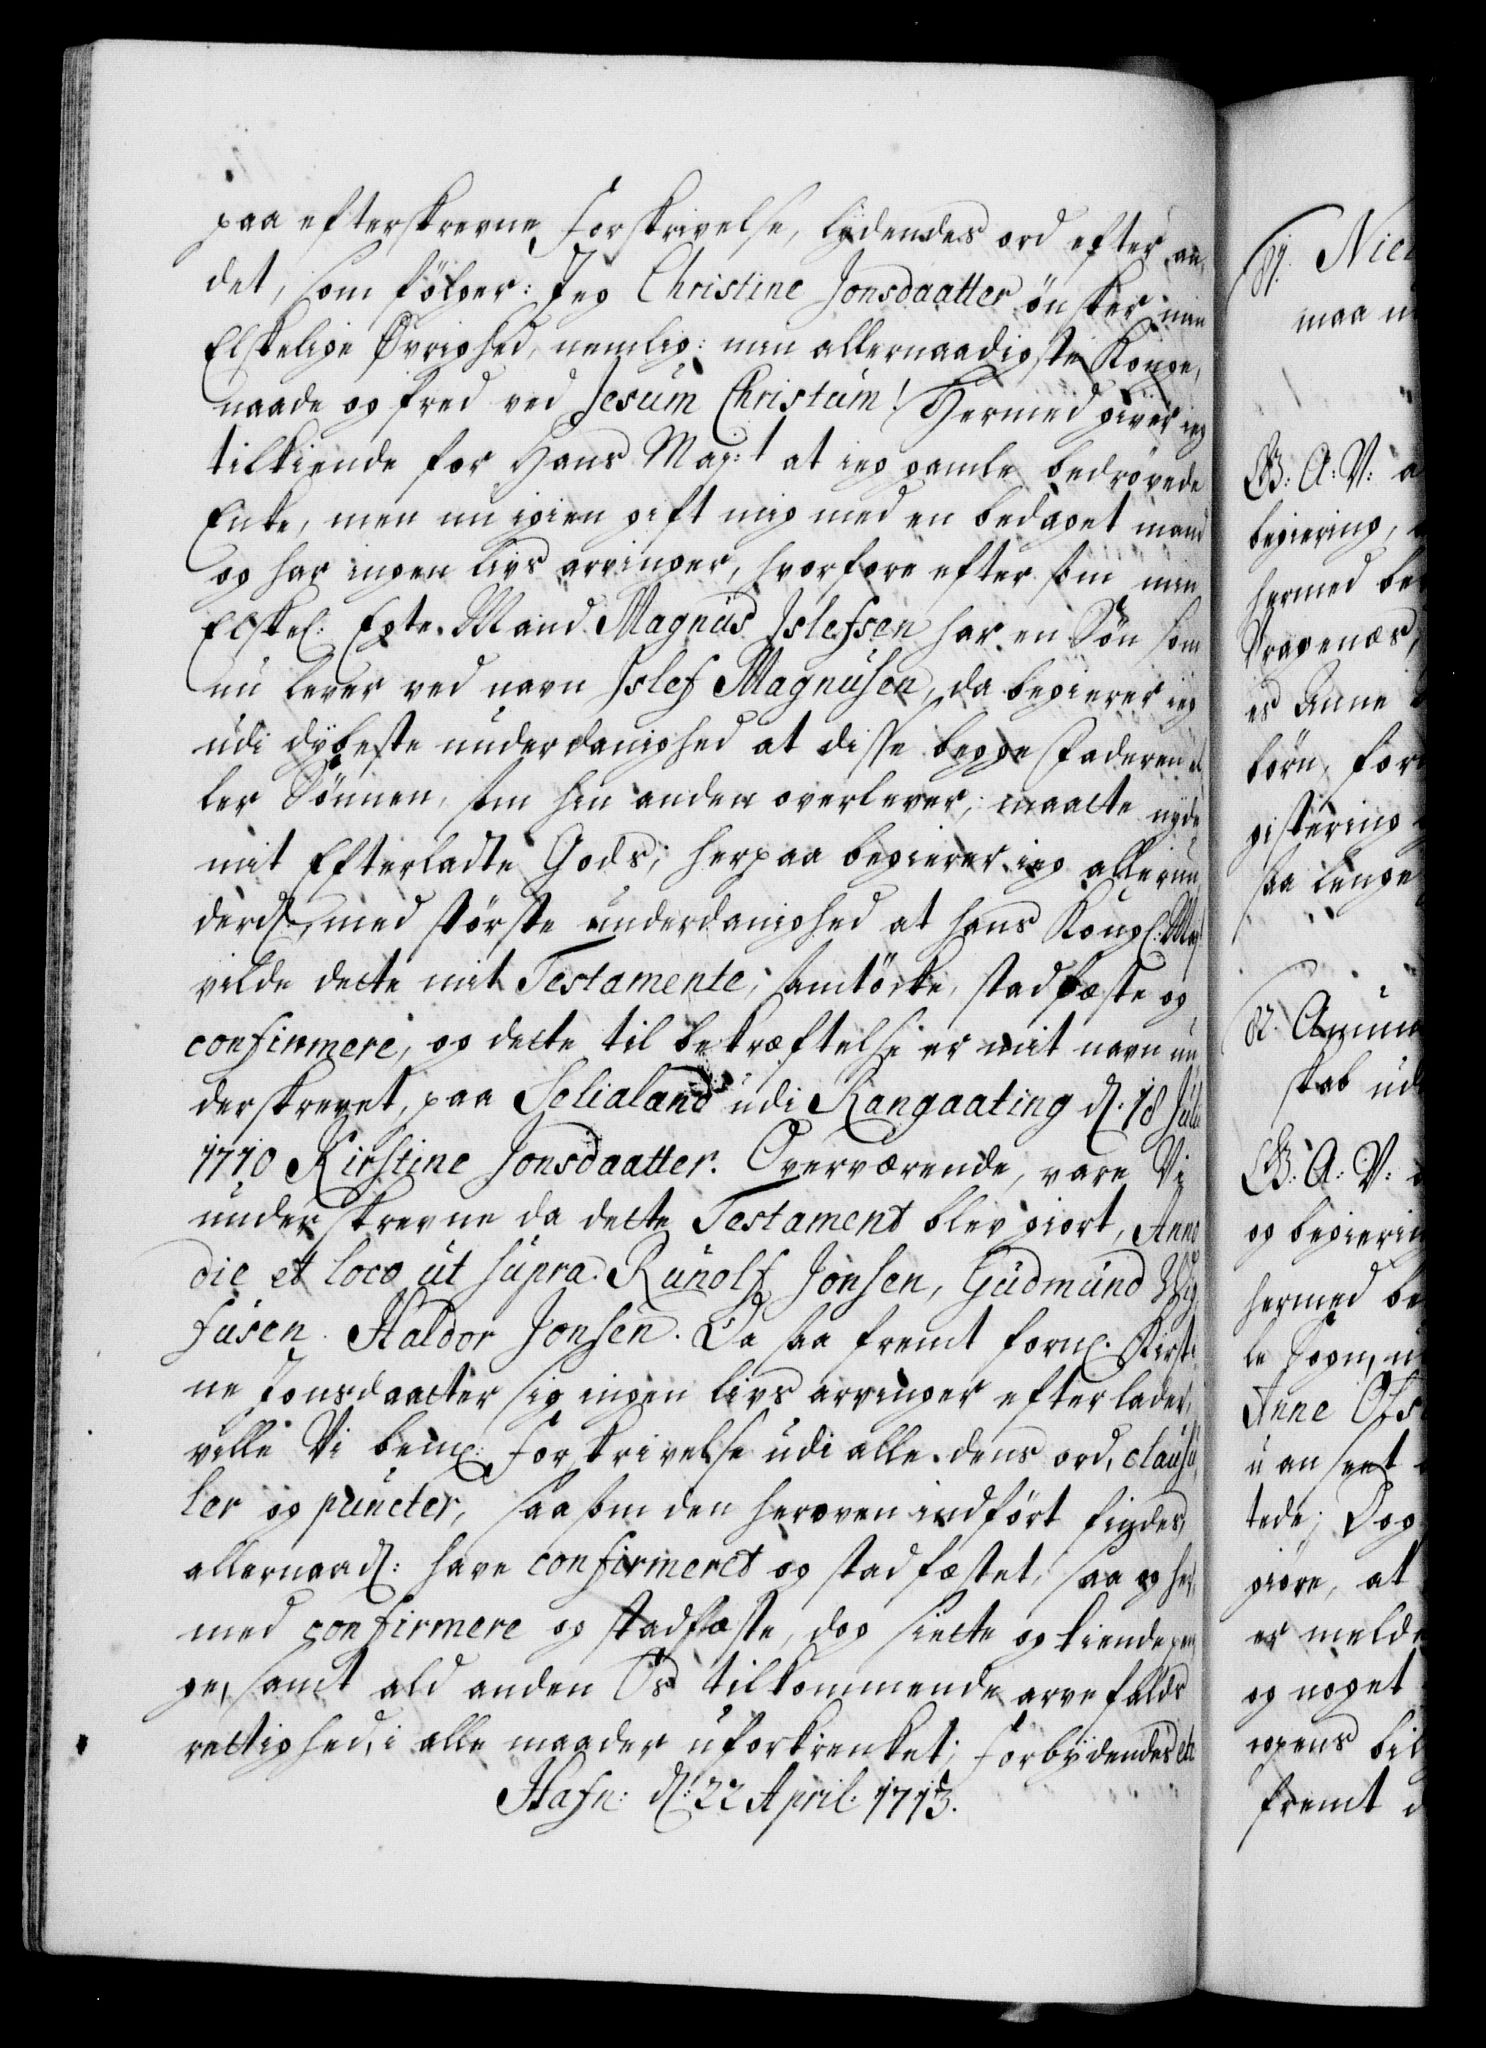 paa efterskrevne Forskrivelse, lydendes ord efter an,
det, som fölger: Jeg Christine Jonsdaatter önsker min
Elskelige Øvrighed, nemlig: min allernaadigste Konge,
naade og fred ved Jesum Christum! Hermed giver ieg
tilkiende for Hans Maj:t at ieg gamle bedrövede
Enke, men nu igien gift mig med en bedaget mand
og har ingen livs arvinger, hvorfore eftersom min
Elskel: Egte Mand Magnus Islefsen har en Sön som
nu lever ved navn Islef Magnusen, da begierer ieg
udi dybeste underdanighed at disse begge Faderen el
ler Sönnen, som hin anden overlever, maatte nyde
mit Efterladte Gods; herpaa begierer ieg allerun
derd., med störste underdanighed at hans Kongl. Maj
vilde dette mit Testamente, samtöcke, stadfæste og
confirmere, og dette til bekræftelse er mit navn un
derskrevet, paa Selialand udi Rangaating d. 18 Julii
1710 Kirstine Jonsdaatter. Overværende, vare Vi
underskrevne da dette Testament blev giort, Anno
die et loco ut supra. Runolf Jonsen, Gudmund Wig
fusen. Haldor Jonsen. Da saa fremt forn. Kirsti
ne Jonsdaatter sig ingen livs arvinger efterlader,
ville Vi bem: Forskrivelse udi alle dens ord, clausu,
ler og puncter, saasom den heroven indfört findes,
allernaad: have confirmeret og stadfæstet, saa og her,
med confirmere og stadfæste, dog siette og tiende pen
ge, samt ald anden Os tilkommende arvefalds
rettighed, i alle maader uforkrenket; Forbydendes etc
Hafn: d. 22 April. 1713.
Nic
maa
G: A: V: a
begiering,
hermed be
es Anne
börn, for
gistering
saa lenge
skab ud
G: A: V:
og begierin
hermed be
le Sogn, u
Anne Ols
u anseet
tede; Dog
giöre, at
er melde
og noget
ogens bil
fremt d